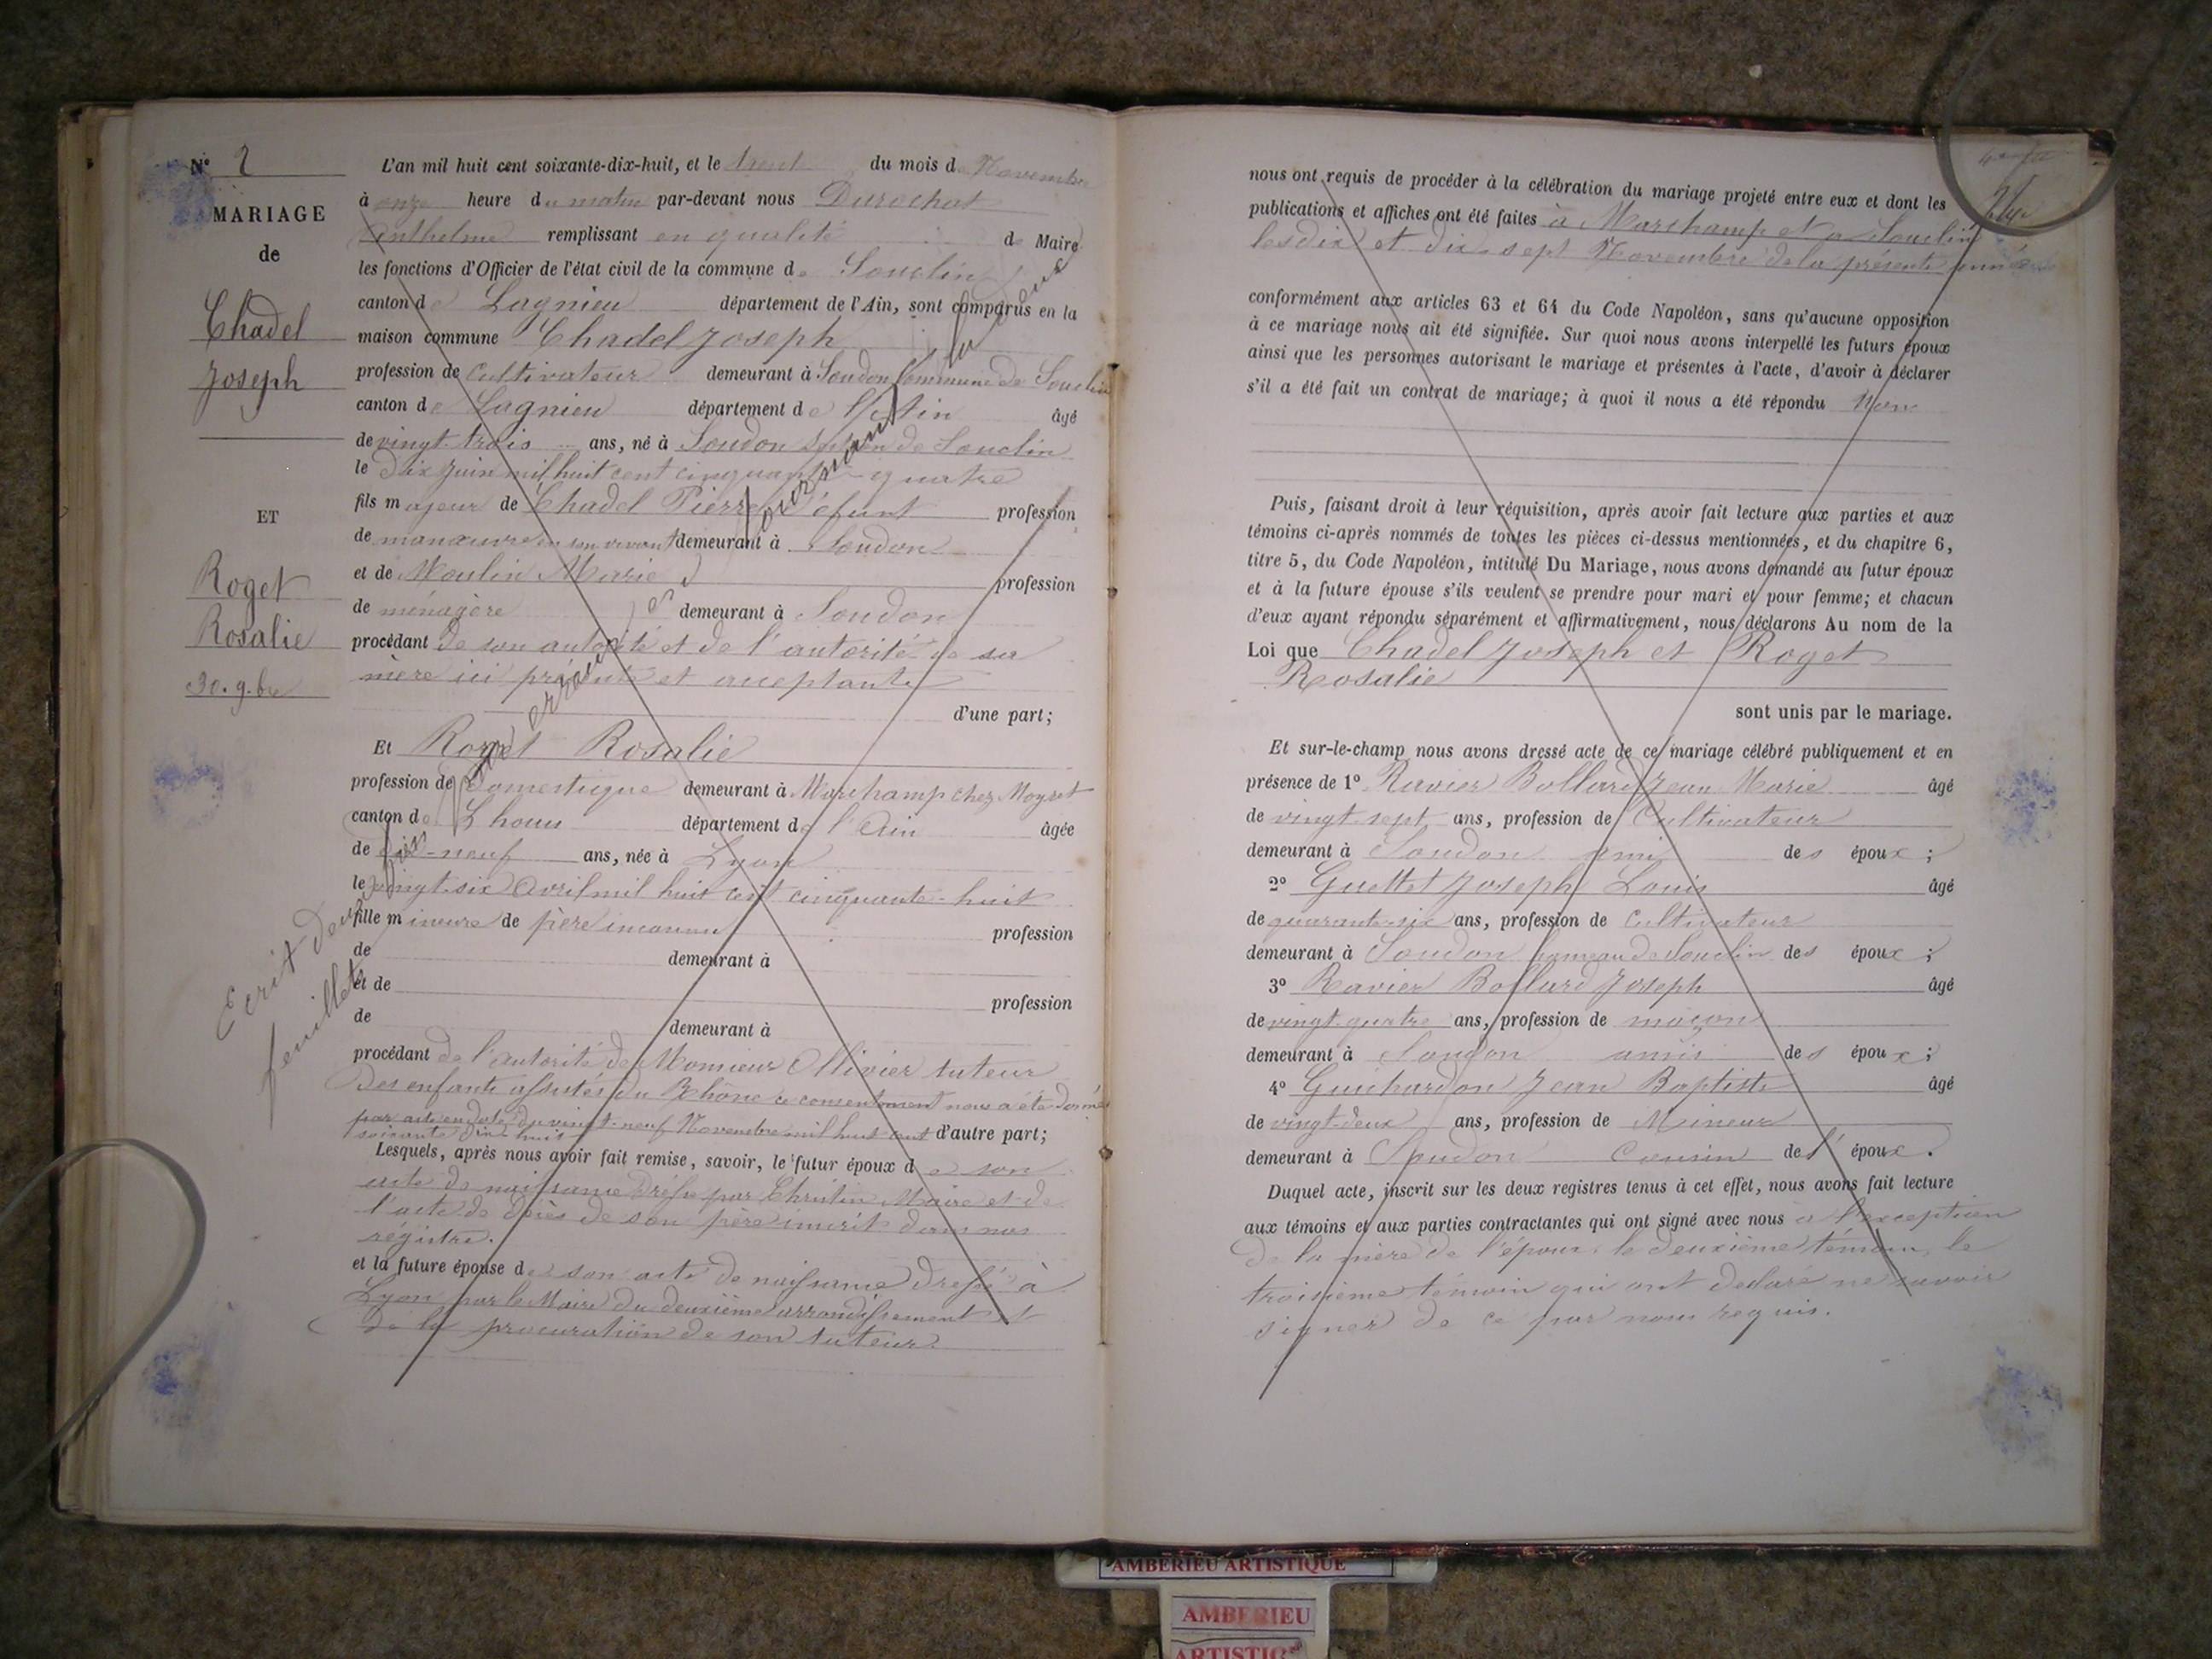 N° 2
MARIAGE
de
Chadel
Joseph
ET
Roget
Rosalie
30. 9.bre
L'an mil huit cent soixante-dix-huit, et le trent du mois de Novembre
à onze heure du matin par-devant nous Durochat
Anthelme remplissant en qualité de Maire
les fonctions d'Officier de l'état civil de la commune de Souclin
canton de Lagnieu département de l'Ain, sont comparus en la
maison commune Chadel Joseph
profession de Cultivateur demeurant à Soudon Commune de Souclin
canton de Lagnieu département de l'Ain âgé
de vingt-trois ans, né à Soudon de Souclin
le dix Juin mil huit cent cinquante-quatre
fils majeur de Chadel Pierre défunt profession
de manœuvre en son vivant demeurant à Soudon
et de Moulin Marie profession
de ménagère demeurant à Soudon
procédant de son autorité et de l'autorité de sa
mère ici présente et acceptante
d'une part;
Et Roget Rosalie
profession de Domestique demeurant à Marchamp chez Moyret
canton de Lhouis département de l'Ain âgée
de dix-neuf ans, née à Lyon
le vingt-six Avril mil huit cent cinquante-huit
fille mineure de père inconnu profession
de demeurant à
et de profession
de demeurant à
procédant de l'autorité de Monsieur Ollivier tuteur
des enfants assistés du Rhône ce consentement nous a été donné
par acte en date du vingt-neuf Novembre mil huit cent d'autre part;
soixante dix huit
Lesquels, après nous avoir fait remise, savoir, le futur époux de son
acte de naissance dressé par Christin Maire et de
l'acte de décès de son père inscrit dans nos
régistre.
et la future épouse de son acte de naissance dressé à
Lyon par le Maire du deuxième arrondissement et
de la procuration de son tuteur
Ecrit deux fois par erreur
feuillet
nous ont requis de procéder à la célébration du mariage projeté entre eux et dont les
publications et affiches ont été faites à Marchamp et à Souclin
les dix et dix-sept Novembre de la présente année
conformément aux articles 63 et 64 du Code Napoléon, sans qu'aucune opposition
à ce mariage nous ait été signifiée. Sur quoi nous avons interpellé les futurs époux
ainsi que les personnes autorisant le mariage et présentes à l'acte, d'avoir à déclarer
s'il a été fait un contrat de mariage; à quoi il nous a été répondu Non
Puis, faisant droit à leur réquisition, après avoir fait lecture aux parties et aux
témoins ci-après nommés de toutes les pièces ci-dessus mentionnées, et du chapitre 6,
titre 5, du Code Napoléon, intitulé Du Mariage, nous avons demandé au futur époux
et à la future épouse s'ils veulent se prendre pour mari et pour femme; et chacun
d'eux ayant répondu séparément et affirmativement, nous déclarons Au nom de la
Loi que Chadel Joseph et Roget
Rosalie
sont unis par le mariage.
Et sur-le-champ nous avons dressé acte de ce mariage célébré publiquement et en
présence de 1° Ravier Bollard Jean Marie âgé
de vingt-sept ans, profession de Cultivateur
demeurant à Soudon ami des époux;
2° Guettet Joseph Louis âgé
de quarante-six ans, profession de Cultivateur
demeurant à Soudon hameau de Souclin des époux;
3° Ravier Bollard Joseph âgé
de vingt-quatre ans, profession de maçon
demeurant à Soudon amis des époux;
4° Guichardon Jean Baptiste âgé
de vingt-deux ans, profession de Mineur
demeurant à Soudon Cousin de l'époux.
Duquel acte, inscrit sur les deux registres tenus à cet effet, nous avons fait lecture
aux témoins et aux parties contractantes qui ont signé avec nous à l'exception
de la mère de l'époux, le deuxième témoin, le
troisième témoin qui ont déclaré ne savoir
signer de ce par nous requis.
AMBERIEU ARTISTIQUE
AMBERIEU
ARTISTIQ